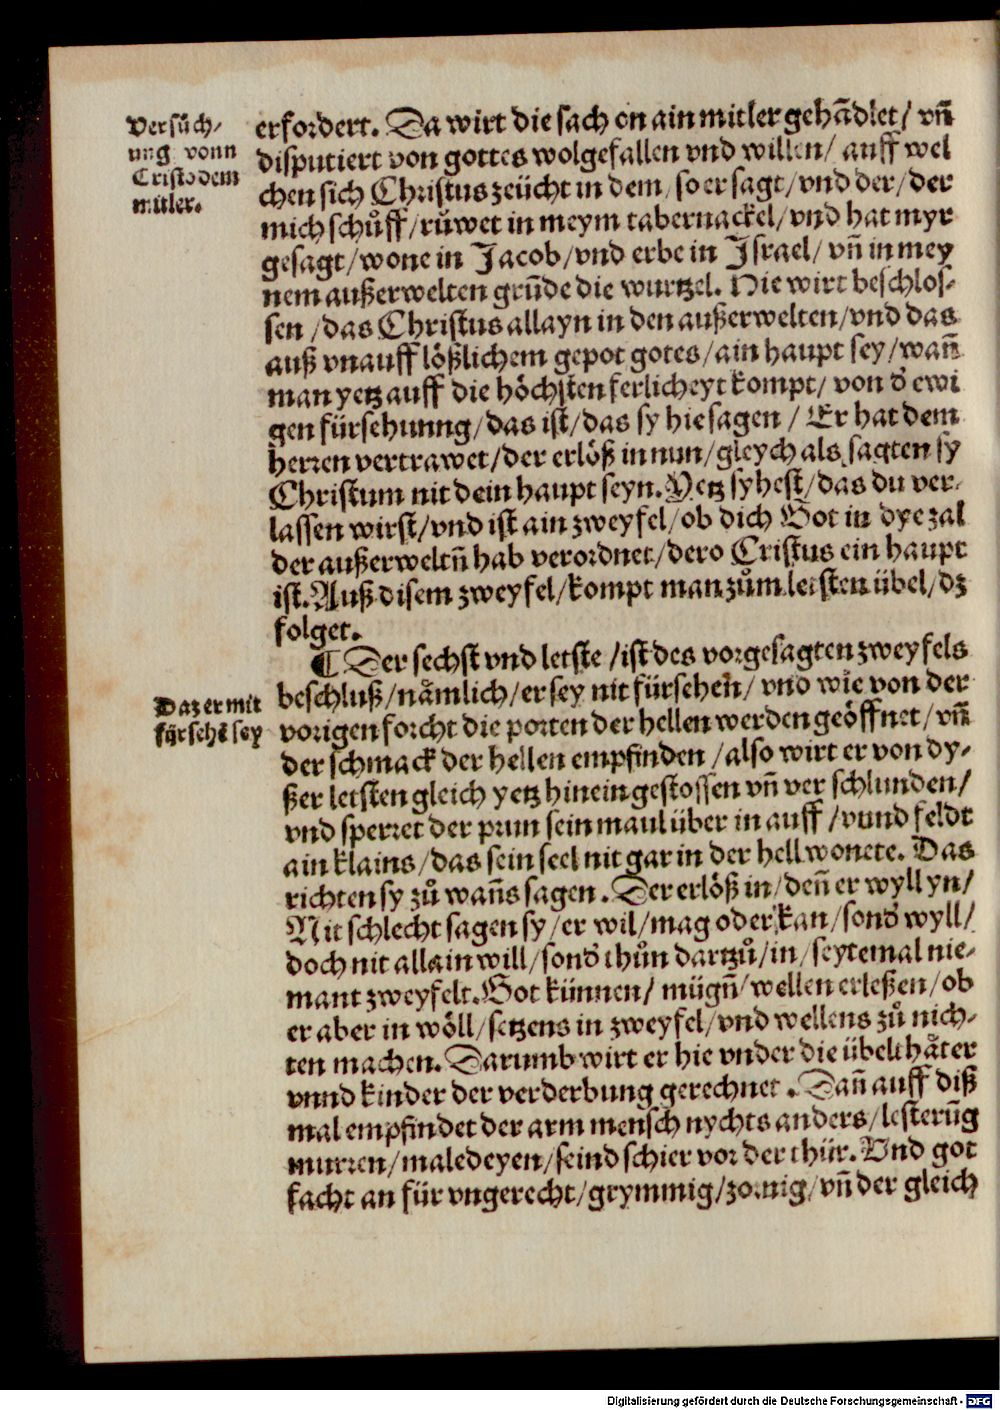 Versuͦch⸗
ung vonn
Cristo dem
mitler.
erfordert. Da wirt die sach on ain mitler gehādlet/ vn̄
disputiert von gottes wolgefallen vnd willen/ auff wel
chen sich Christus zeücht in dem/ so er sagt/ vnd der/ der
mich schuͦff/ ruͦwet in meym tabernackel/ vnd hat myr
gesagt/ wone in Jacob/ vnd erbe in Israel/ vn̄ in mey
nem außerwelten grūde die wurtzel. Hie wirt beschlos⸗
sen/ das Christus allayn in den außerwelten/ vnd das
auß vnaufflößlichem gepot gotes/ ain haupt sey/ wan̄
man yetz auff die höchsten ferlicheyt kompt/ von d̕ ewi
gen fürsehunng/ das ist/ das sy hie sagen/ Er hat dem
herren vertrawet/ der erlöß in nun/ gleych als sagten sy
Christum nit dein haupt seyn. Yetz syhest/ das du ver⸗
lassen wirst/ vnd ist ain zweyfel/ ob dich Got in dye zal
der außerweltn̄ hab verordnet/ dero Cristus ein haupt
ist. Auß disem zweyfel/ kompt man zuͦm letsten übel/ dz
folget.
¶ Der sechst vnd letste/ ist des vorgesagten zweyfels
Daz er mit
fürsehē sey
beschluß/ nämlich/ er sey nit fürsehen/ vnd wie von der
vorigen forcht die porten der hellen werden geöffnet/ vn̄
der schmack der hellen empfinden/ also wirt er von dy⸗
ßer letsten gleich yetz hinein gestossen vn̄ verschlunden/
vnd sperret der prun sein maul über in auff/ vnnd feldt
ain klains/ das sein seel nit gar in der hell wonete. Das
richten sy zuͦ wan̄s sagen. Der erlöß in/ den̄ er wyll yn/
Nit schlecht sagen sy/ er wil/ mag oder kan/ sond̕ wyll/
doch nit allain will/ sond̕ thuͦn dartzuͦ/ in/ seytemal nie⸗
mant zweyfelt. Got künnen/ mügn̄/ wellen erleßen/ ob
er aber in wöll/ setzens in zweyfel/ vnd wellens zuͦ nich⸗
ten machen. Darumb wirt er hie vnder die übelthäter
vnnd kinder der verderbung gerechnet. Dan̄ auff diß
mal empfindet der arm mensch nychts anders/ lesterūg
murren/ maledeyen/ seind schier vor der thür. Vnd got
facht an für vngerecht/ grymmig/ zornig/ vn̄ der gleich
Digitalisierung gefördert durch die Deutsche Forschungsgemeinschaft - DFG